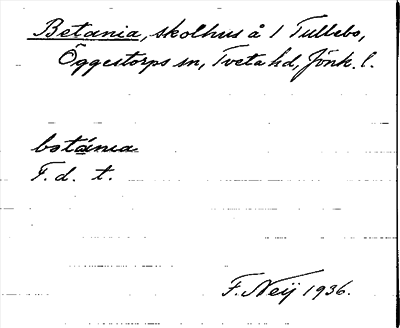 Betania, skolhus å 1 Tullebo,
Öggestorps sn, Tveta hd, Jönk. l.
betánia
T. d. t.
F. Neij 1936.